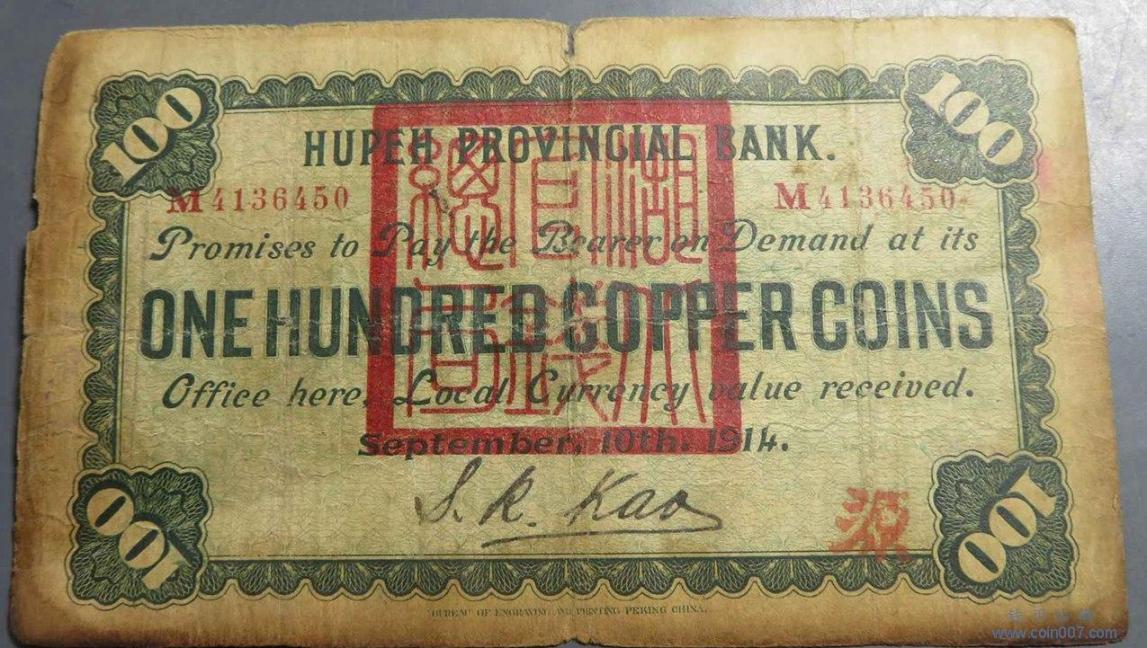 100 100
HUPEH PROVINCIAL BANK.
M4136450 M4136450
Promises to Pay the Bearer on Demand at its
ONE HUNDRED COPPER COINS
Office here, Local Currency value received.
September, 10th. 1914.
S. R. Kao
源
100 100
BUREAU OF ENGRAVING AND PRINTING PEKING CHINA.
www.coin007.com